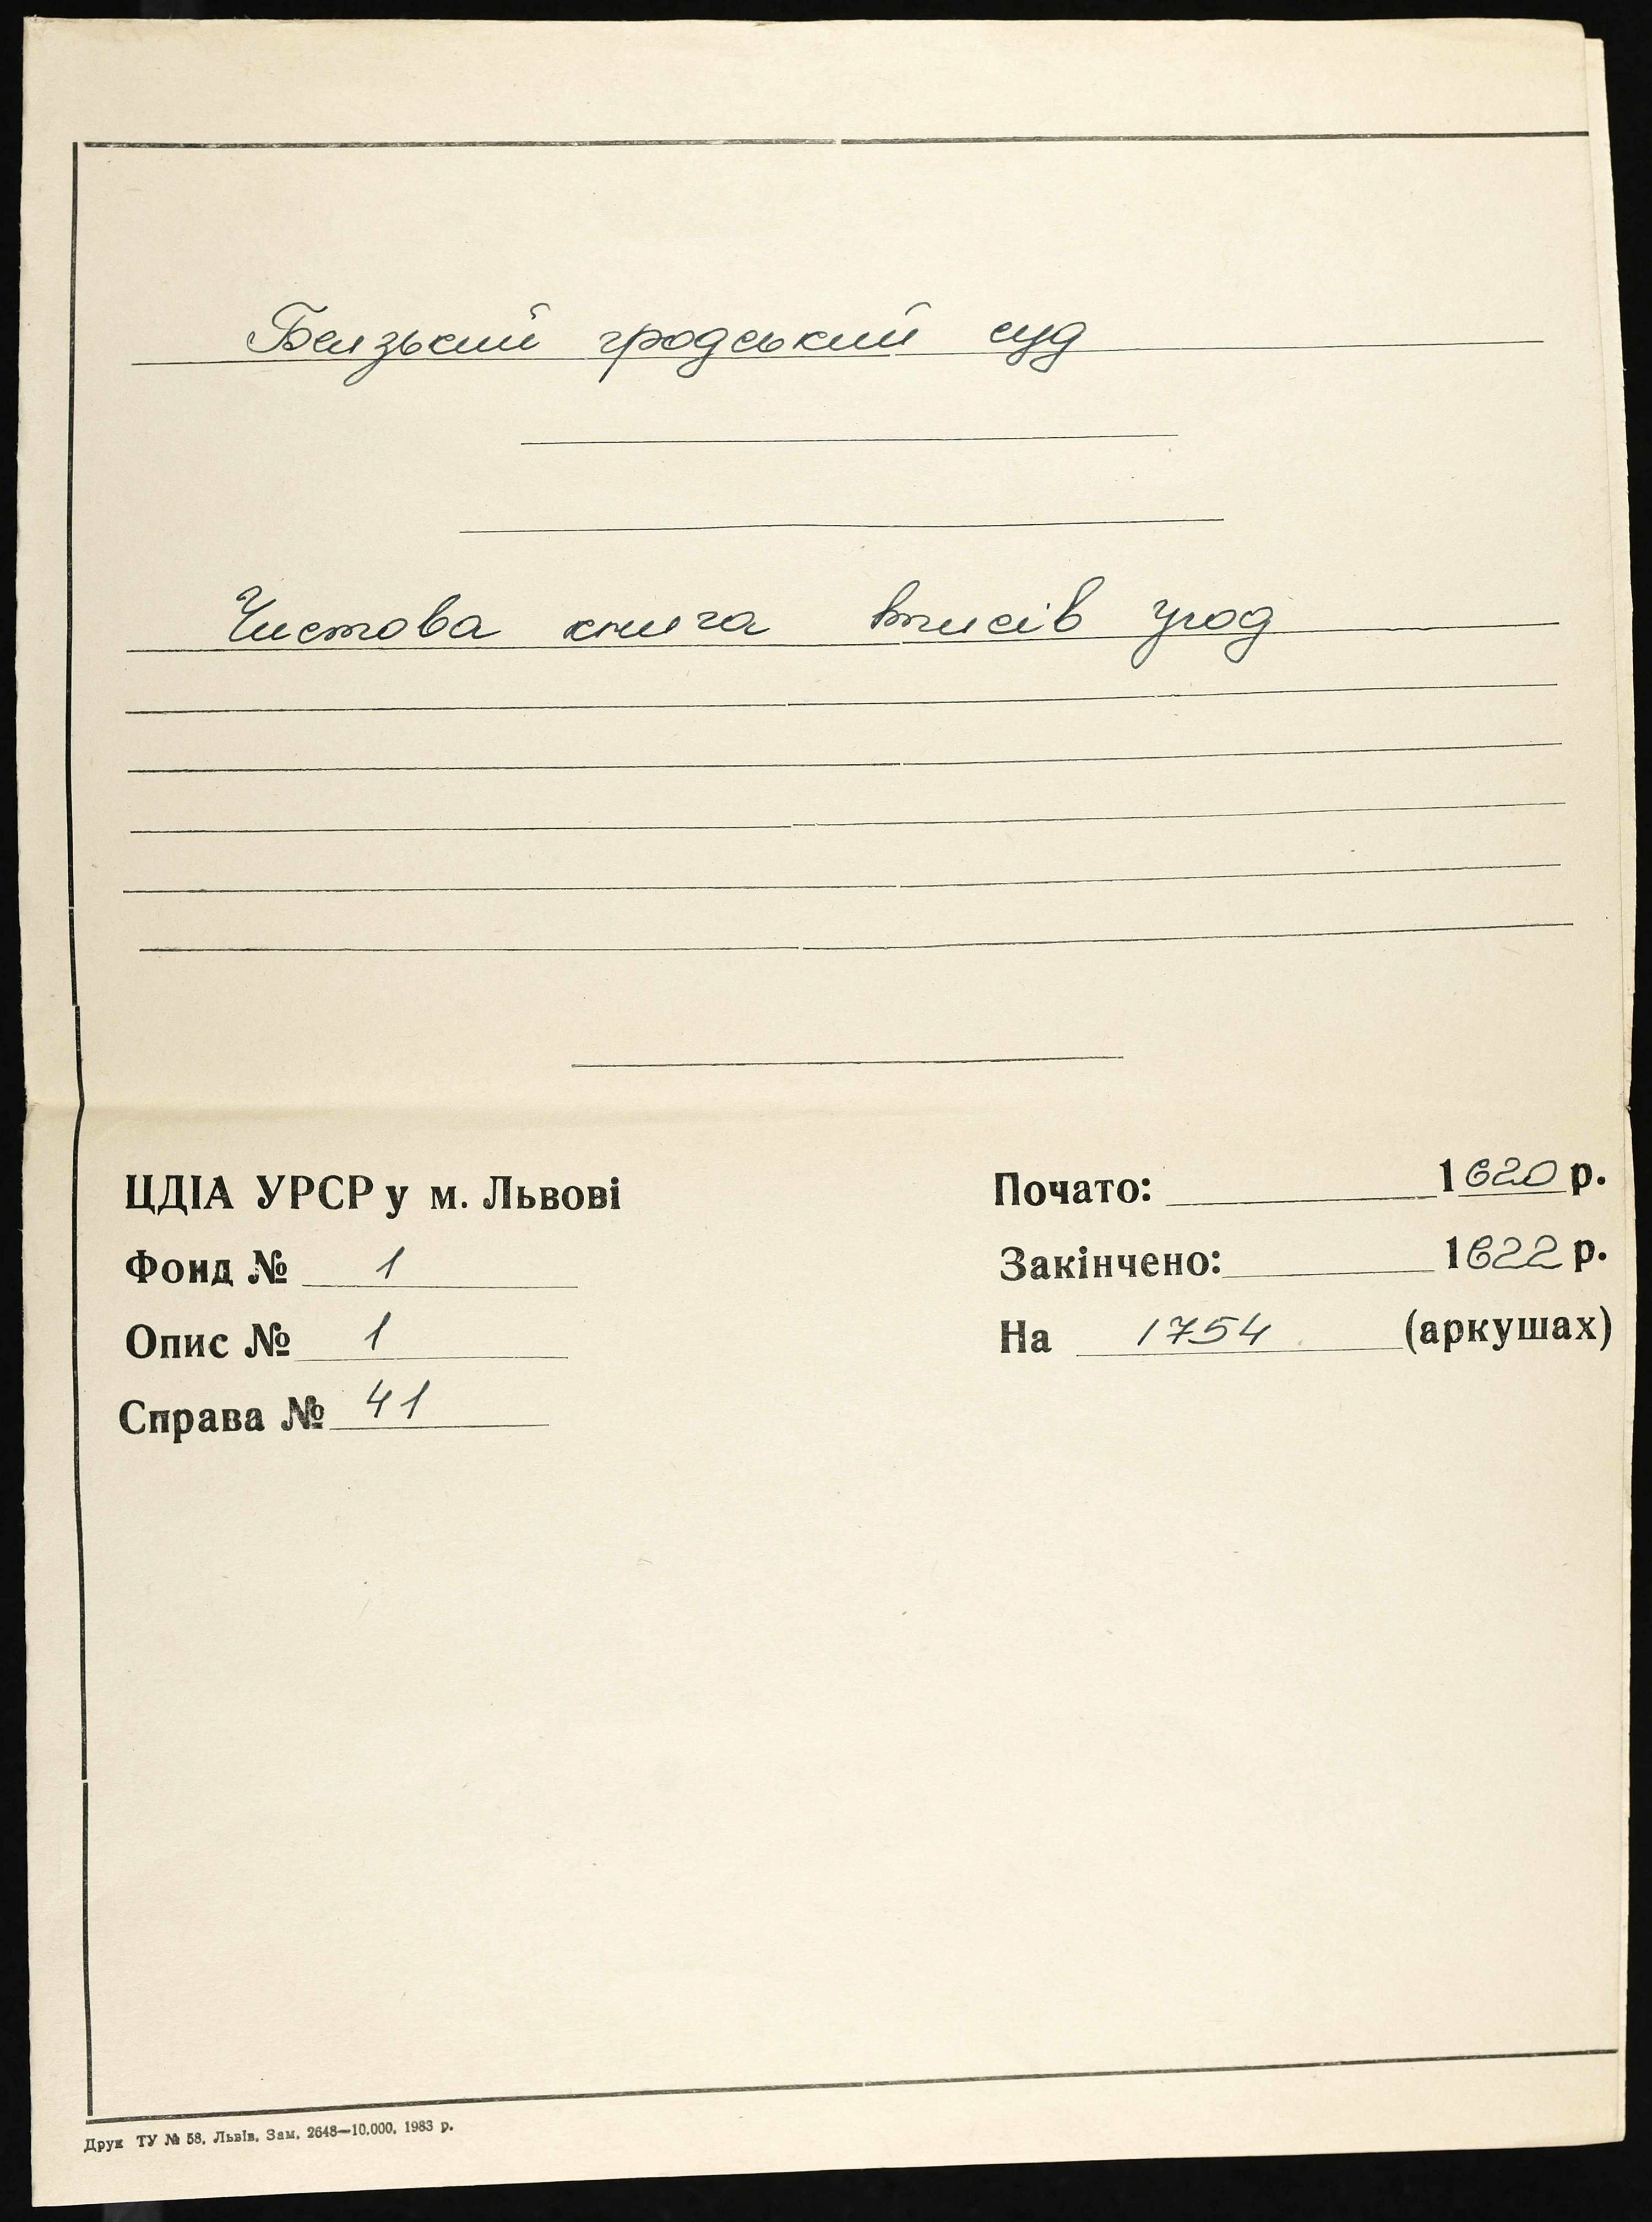 Белзький гродський суд
Чистова книга вписів угод
ЦДІА УРСР у м. Львові
Фонд № 1
Опис № 1
Справа № 41
Почато: 1620 р.
Закінчено: 1622 р.
На 1754 (аркушах)
Друк ТУ № 58. Львів. Зам. 2648—10.000. 1983 р.